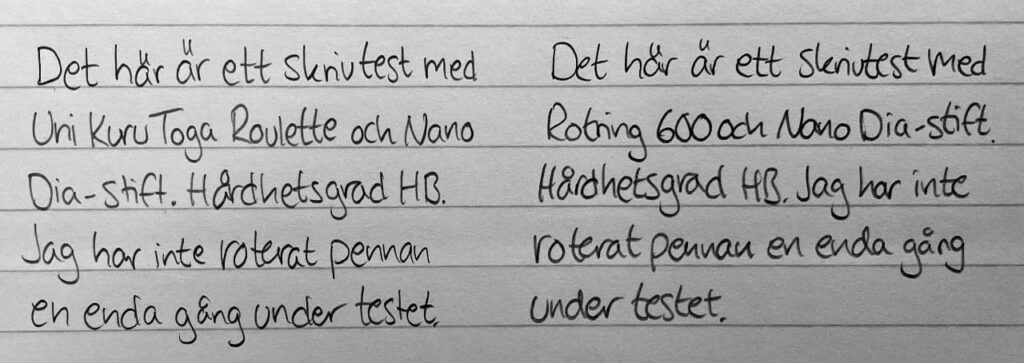 Det här är ett skrivtest med
Uni Kuru Toga Roulette och Nano
Dia-stift. Hårdhetsgrad HB.
Jag har inte roterat pennan
en enda gång under testet.
Det här är ett skrivtest med
Rotring 600 och Nano Dia-stift.
Hårdhetsgrad HB. Jag har inte
roterat pennan en enda gång
under testet.